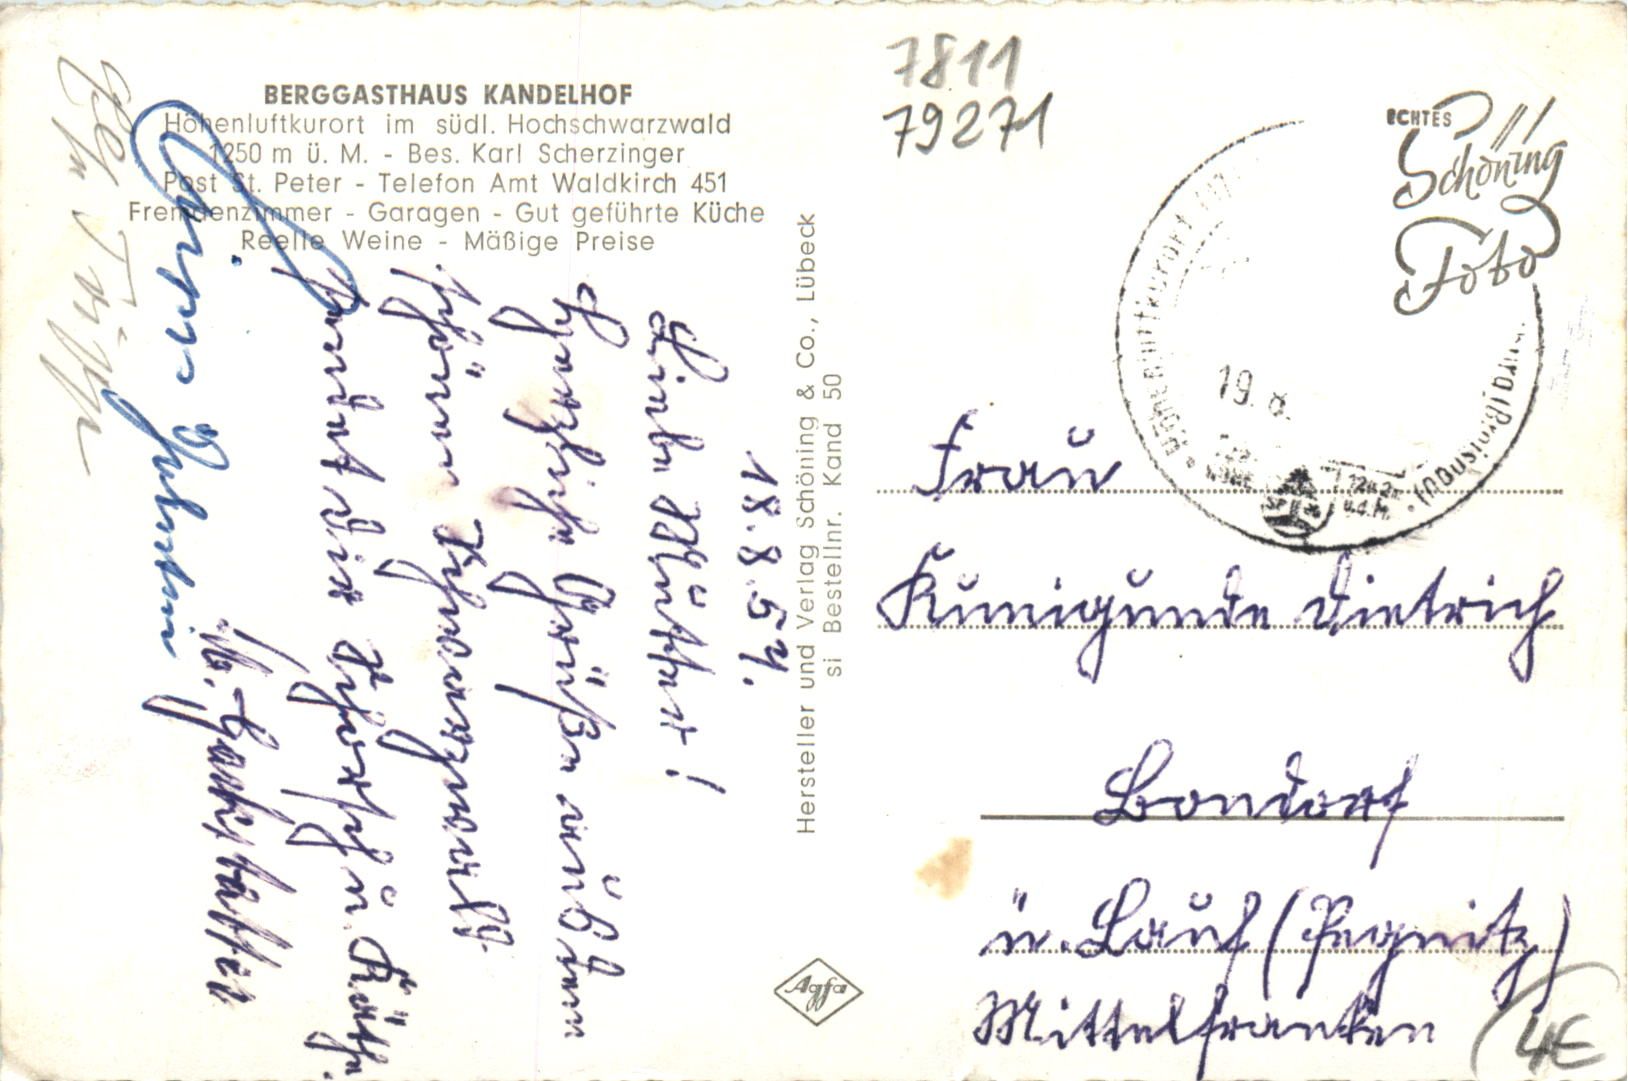 BERGGASTHAUS KANDELHOF
Höhenluftkurort im südl. Hochschwarzwald
1250 m ü. M. - Bes. Karl Scherzinger
Post St. Peter - Telefon Amt Waldkirch 451
Fremdenzimmer - Garagen - Gut geführte Küche
Reelle Weine - Mäßige Preise
18.8.54.
Liebe Mutter!
Herzliche Grüße aus dem
schönen Schwarzwald
sendet Dir Schorsch u. Käthe.
Hersteller und Verlag Schöning & Co., Lübeck
si Bestellnr. Kand 50
Agfa
7811
79271
ECHTES
Schöning
Foto
Höhenluftkurort
(Breisgau)
19. 8.
Frau
Kunigunde Dietrich
Bondorf
ü. Lauf (Pegnitz)
Mittelfranken
4€